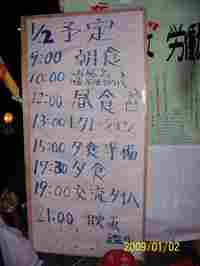 1/2 予定
9:00 朝食
10:00
12:00 昼食
13:00 レクレーション
15:00 夕食準備
17:30 夕食
19:00 交流タイム
21:00 映画
労働
2009/01/02